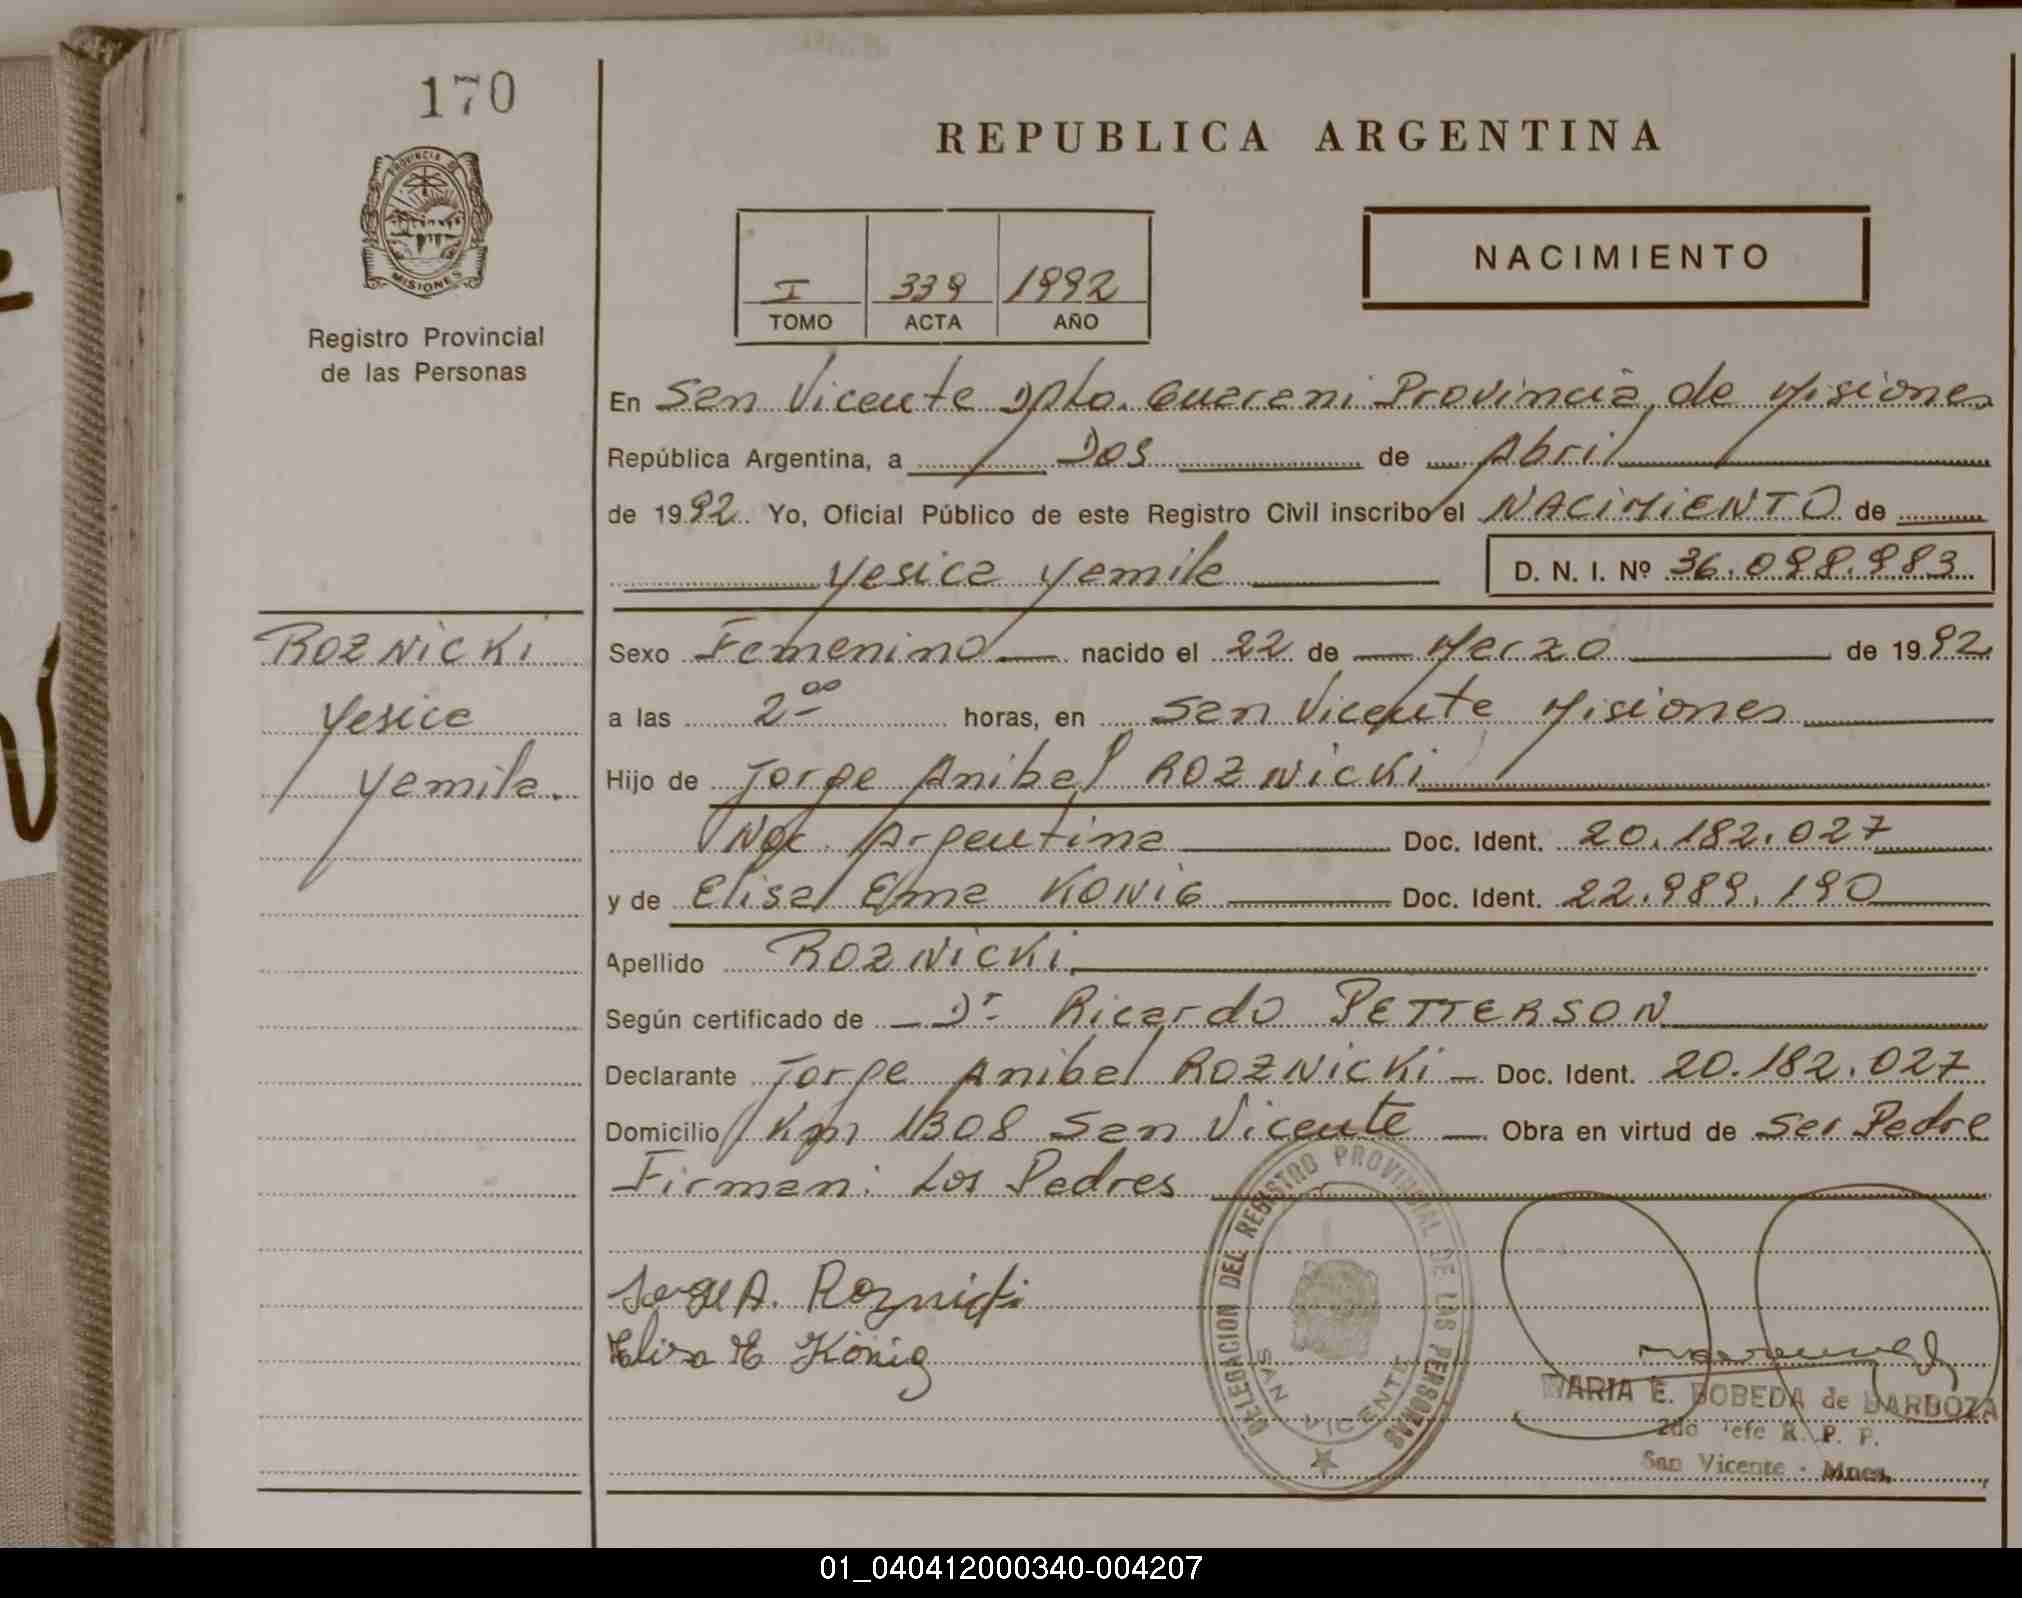 170
PROVINCIA DE
MISIONES
Registro Provincial
de las Personas
REPUBLICA ARGENTINA
I 339 1992
TOMO ACTA AÑO
NACIMIENTO
En San Vicente Dpto. Guarani Provincia de Misiones
República Argentina, a Dos de Abril
de 1992. Yo, Oficial Público de este Registro Civil inscribo el NACIMIENTO de
Yesica Yamila D. N. I. Nº 36.098.983
ROZNICKI
Yesica
Yamila.
Sexo Femenino nacido el 22 de Marzo de 1992
a las 2 00 horas, en San Vicente Misiones
Hijo de Jorge Anibal ROZNICKI
Nac. Argentina Doc. Ident. 20.182.027
y de Elisa Ema KONIG Doc. Ident. 22.989.190
Apellido ROZNICKI
Según certificado de Dr Ricardo PETTERSON
Declarante Jorge Anibal ROZNICKI Doc. Ident. 20.182.027
Domicilio Km 1308 San Vicente Obra en virtud de Ser Padre
Firman: Los Padres
Jorge A. Roznicki
Elisa E König
DELEGACION DEL REGISTRO PROVINCIAL DE LAS PERSONAS
SAN VICENTE
MARIA E. BOBEDA de BARBOZA
2do Jefe R. P. P.
San Vicente - Mnes.
01_040412000340-004207